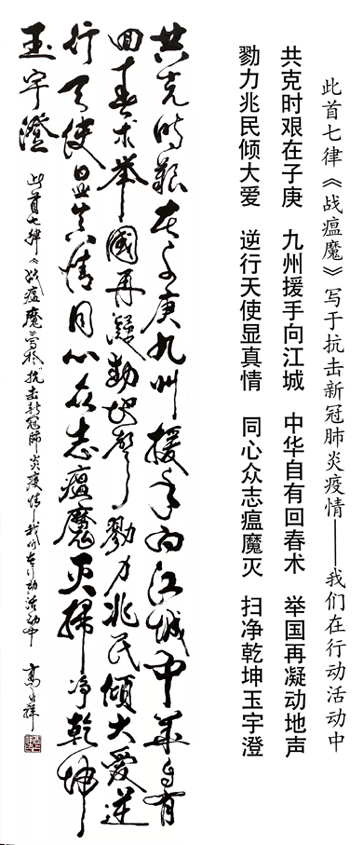 此首七律《战瘟魔》写于抗击新冠肺炎疫情——我们在行动活动中
共克时艰在子庚 九州援手向江城 中华自有回春术 举国再凝动地声
戮力兆民倾大爱 逆行天使显真情 同心众志瘟魔灭 扫净乾坤玉宇澄
共克時艱在子庚九州援手向江城中華自有
回春术举國再凝動地聲戮力兆民傾大爱逆
行天使显真情同心众志瘟魔灭掃净乾坤
玉宇澄
此首七律《战瘟魔》写於抗击新冠肺炎疫情——我们在行动活动中